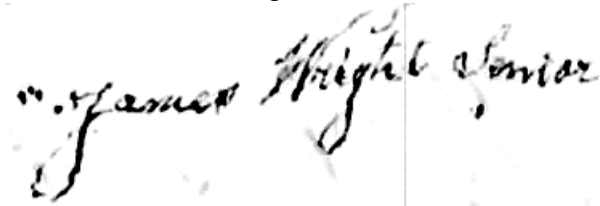 James Wright Senior